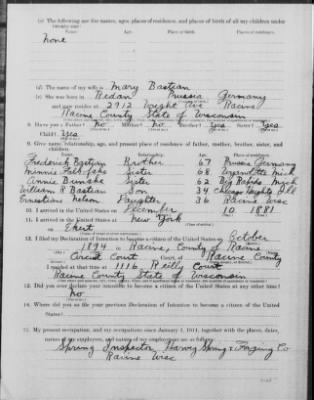 (c) The following are the names, ages, places of residence, and places of birth of all my children under
Name. Age. Place of birth. Place of residence.
None
(d) The name of my wife is Mary Bastian
(e) She was born in Redan Prussia Germany
and now resides at 2912 Wright Ave Racine
Racine County State of Wisconsin
8. Have you a Father? No Mother? No Brother? Yes Sister? Yes
Child? Yes
9. Give name, relationship, age, and present place of residence of father, mother, brother, sister, and child.
Name. Relationship. Age. Place of residence.
Frederick Bastian Brother 67 Prussia Germany
Minnie Sister 68 Wyandotte Mich
Annie Sister 62 Big Rapids Mich
William R Bastian Son 34 Chicago Heights Ill
Ernestine Nelson Daughter 36 Racine Wisc
10. I arrived in the United States on December 10 1881
11. I arrived in the United States at New York
on
12. I filed my Declaration of Intention to become a citizen of the United States on October
1894 Racine, County of Racine
Circuit Court of Racine County
I resided at that time at 1116 Reilly Court
Racine County State of Wisconsin
13. Did you ever declare your intention to become a citizen of the United States at any other time?
No
14. Where did you file your previous Declaration of Intention to become a citizen of the United
States?
15. My present occupation, and my occupations since January 1, 1914, together with the places, dates,
names of my employers, and nature of my employment are as follows:
Spring Inspector Harvey Spring & Forging Co
Racine Wisc